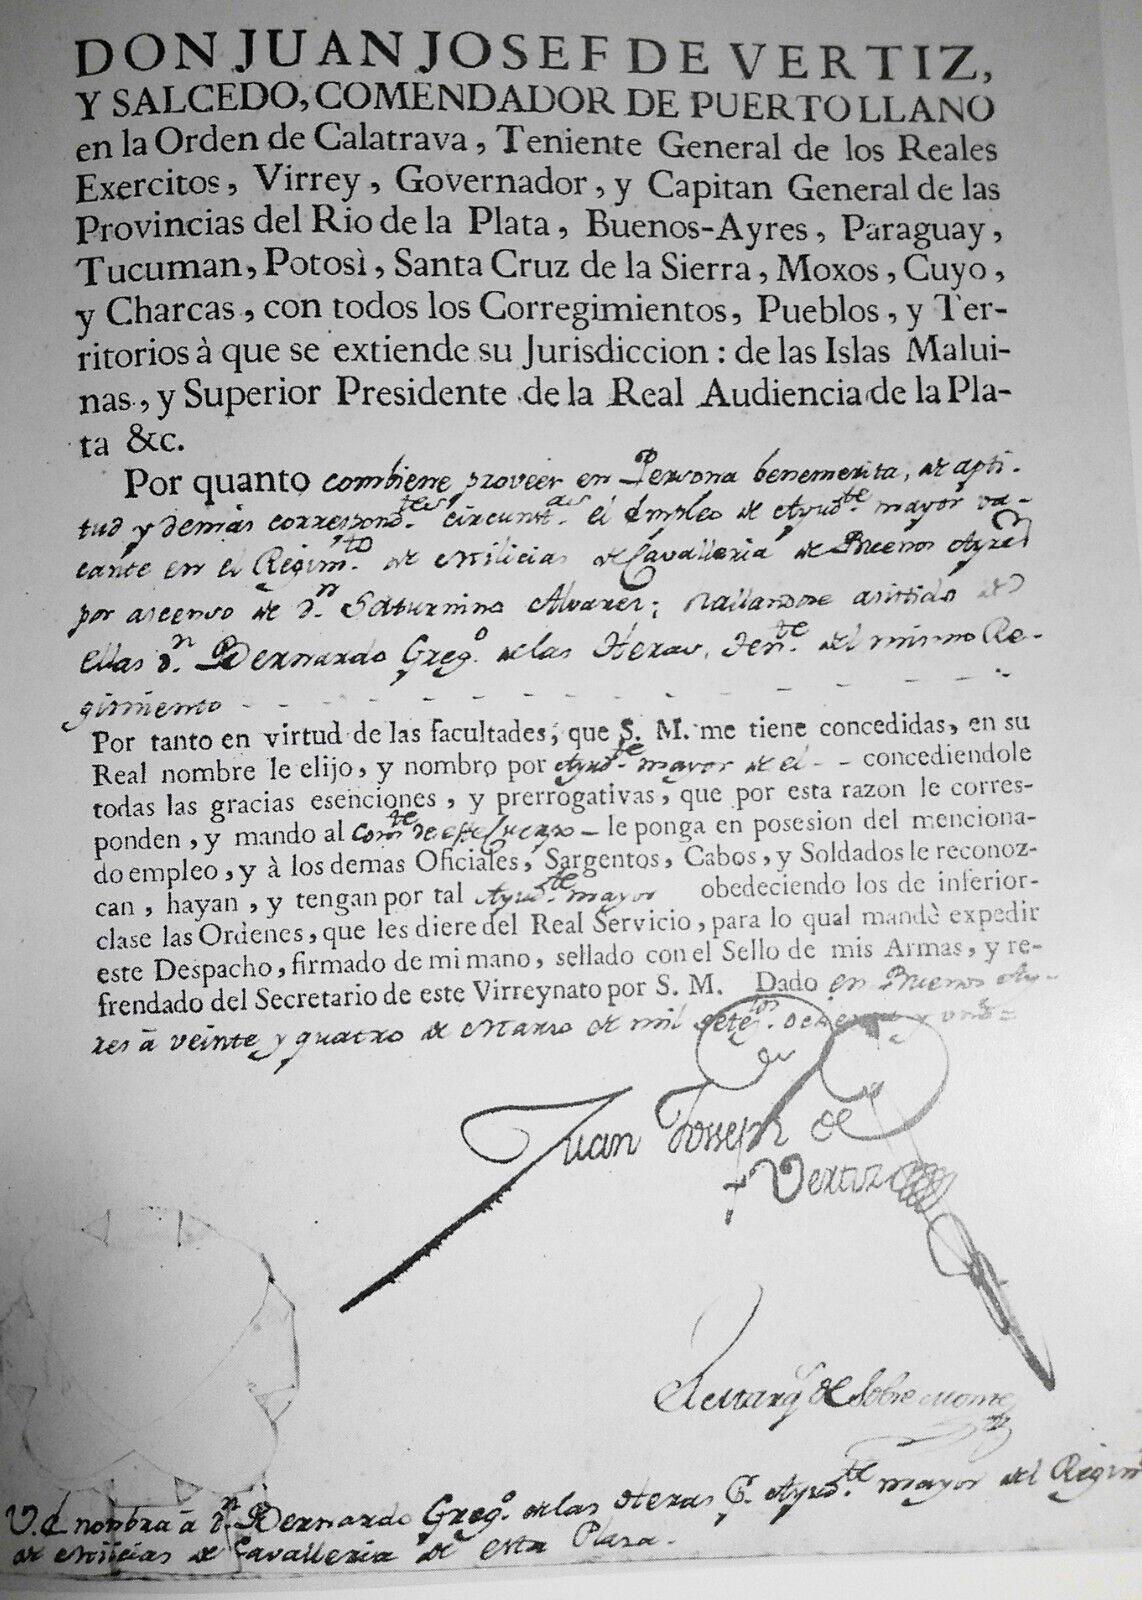 DON JUAN JOSEF DE VERTIZ,
Y SALCEDO, COMENDADOR DE PUERTO LLANO
en la Orden de Calatrava, Teniente General de los Reales
Exercitos, Virrey, Governador, y Capitan General de las
Provincias del Rio de la Plata, Buenos-Ayres, Paraguay,
Tucuman, Potosì, Santa Cruz de la Sierra, Moxos, Cuyo,
y Charcas, con todos los Corregimientos, Pueblos, y Ter-
ritorios à que se extiende su Jurisdiccion: de las Islas Malui-
nas, y Superior Presidente de la Real Audiencia de la Pla-
ta &c.
Por quanto combiene proveer en Persona benemerita, de apti-
tud y demás correspond.tes circunst.as el Empleo de Ayud.te mayor va-
cante en el Regim.to de Milicias de Cavalleria de Buenos Ayres
por ascenso de d.n Saturnino Alvares; hallandose asistido de
ellas d.n Bernardo Greg.o de las Heras, Ten.te del mismo Re-
gimiento
Por tanto en virtud de las facultades, que S. M. me tiene concedidas, en su
Real nombre le elijo, y nombro por Ayud.te mayor de el - - concediendole
todas las gracias esenciones, y prerrogativas, que por esta razon le corres-
ponden, y mando al Com.te de este Cuerpo - le ponga en posesion del menciona-
do empleo, y à los demas Oficiales, Sargentos, Cabos, y Soldados le reconoz-
can, hayan, y tengan por tal Ayud.te mayor obedeciendo los de inferior-
clase las Ordenes, que les diere del Real Servicio, para lo qual mandè expedir
este Despacho, firmado de mi mano, sellado con el Sello de mis Armas, y re-
frendado del Secretario de este Virreynato por S. M. Dado en Buenos Ay-
res á veinte y quatro de Marzo de mil sete.tos ochenta y uno
Juan Joseph de
Vertiz
El Marq.s de Sobre Monte
V.E. nombra á d.n Bernardo Greg.o de las Heras p.r Ayud.te mayor del Regim
de Milicias de Cavalleria de esta Plaza.